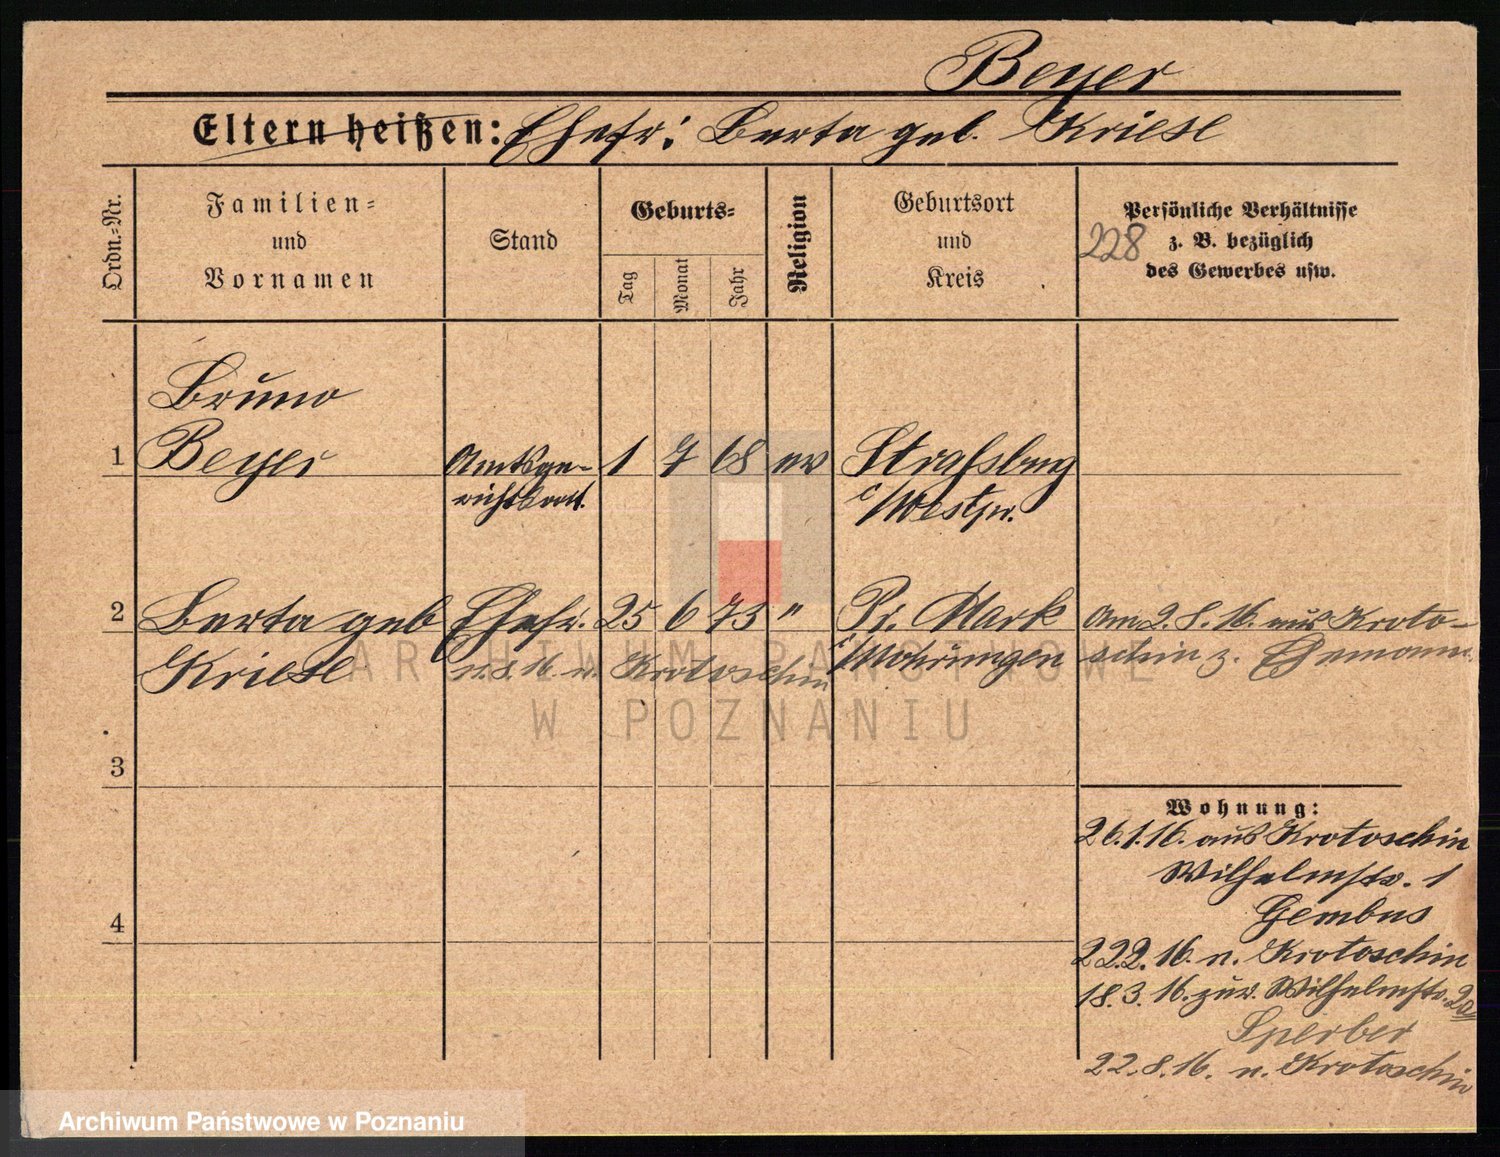 Beyer
Eltern heißen: Ehefr: Berta geb. Kriese
Ordn.=Nr.
Familien=
und
Vornamen
Stand
Geburts=
Tag
Monat
Jahr
Religion
Geburtsort
und
Kreis
Persönliche Verhältnisse
z. B. bezüglich
des Gewerbes usw.
228
Bruno
1 Beyer Amtsge- 1 7 68 ev Straßburg
richtsrat. i/Westpr.
2 Berta geb Ehefr. 25 6 73 " Pr. Mark Am 2.8.16. aus Kroto-
Kriese n. Krotoschin i/Mohrungen schin z. Ehemann
3
4
Wohnung:
26.1.16. aus Krotoschin
Wilhelmstr. 1
Gembus
22.2.16. n. Krotoschin
18.3.16. zur. Wilhelmstr.
Sperber
22.8.16. n. Krotoschin
ARCHIWUM PAŃSTWOWE
W POZNANIU
Archiwum Państwowe w Poznaniu